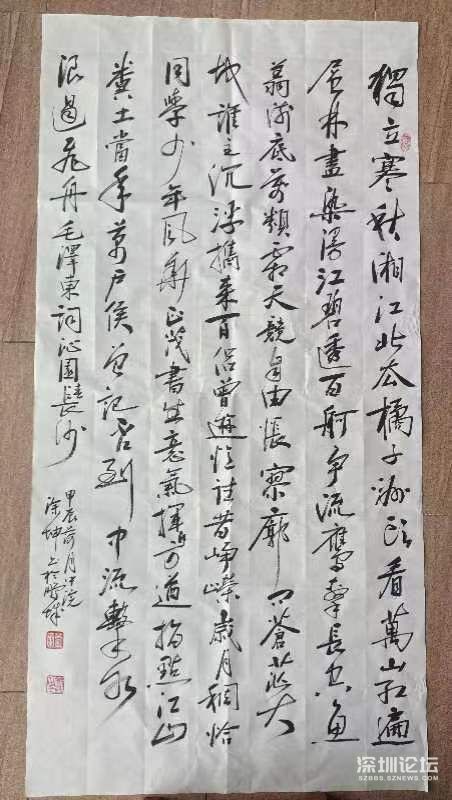 獨立寒秋湘江北去橘子洲頭看萬山紅遍
層林盡染漫江碧透百舸争流鷹擊長空魚
翔淺底萬類霜天競自由悵寥廓問蒼茫大
地誰主沉浮攜來百侣曾遊憶往昔崢嶸歲月稠恰
同學少年風華正茂書生意氣揮斥方遒指點江山
糞土當年萬户侯曾記否到中流擊水
浪遏飛舟毛澤東詞沁園春長沙
甲辰荷月
徐坤
深圳论坛
SZBBS.SZNEWS.COM